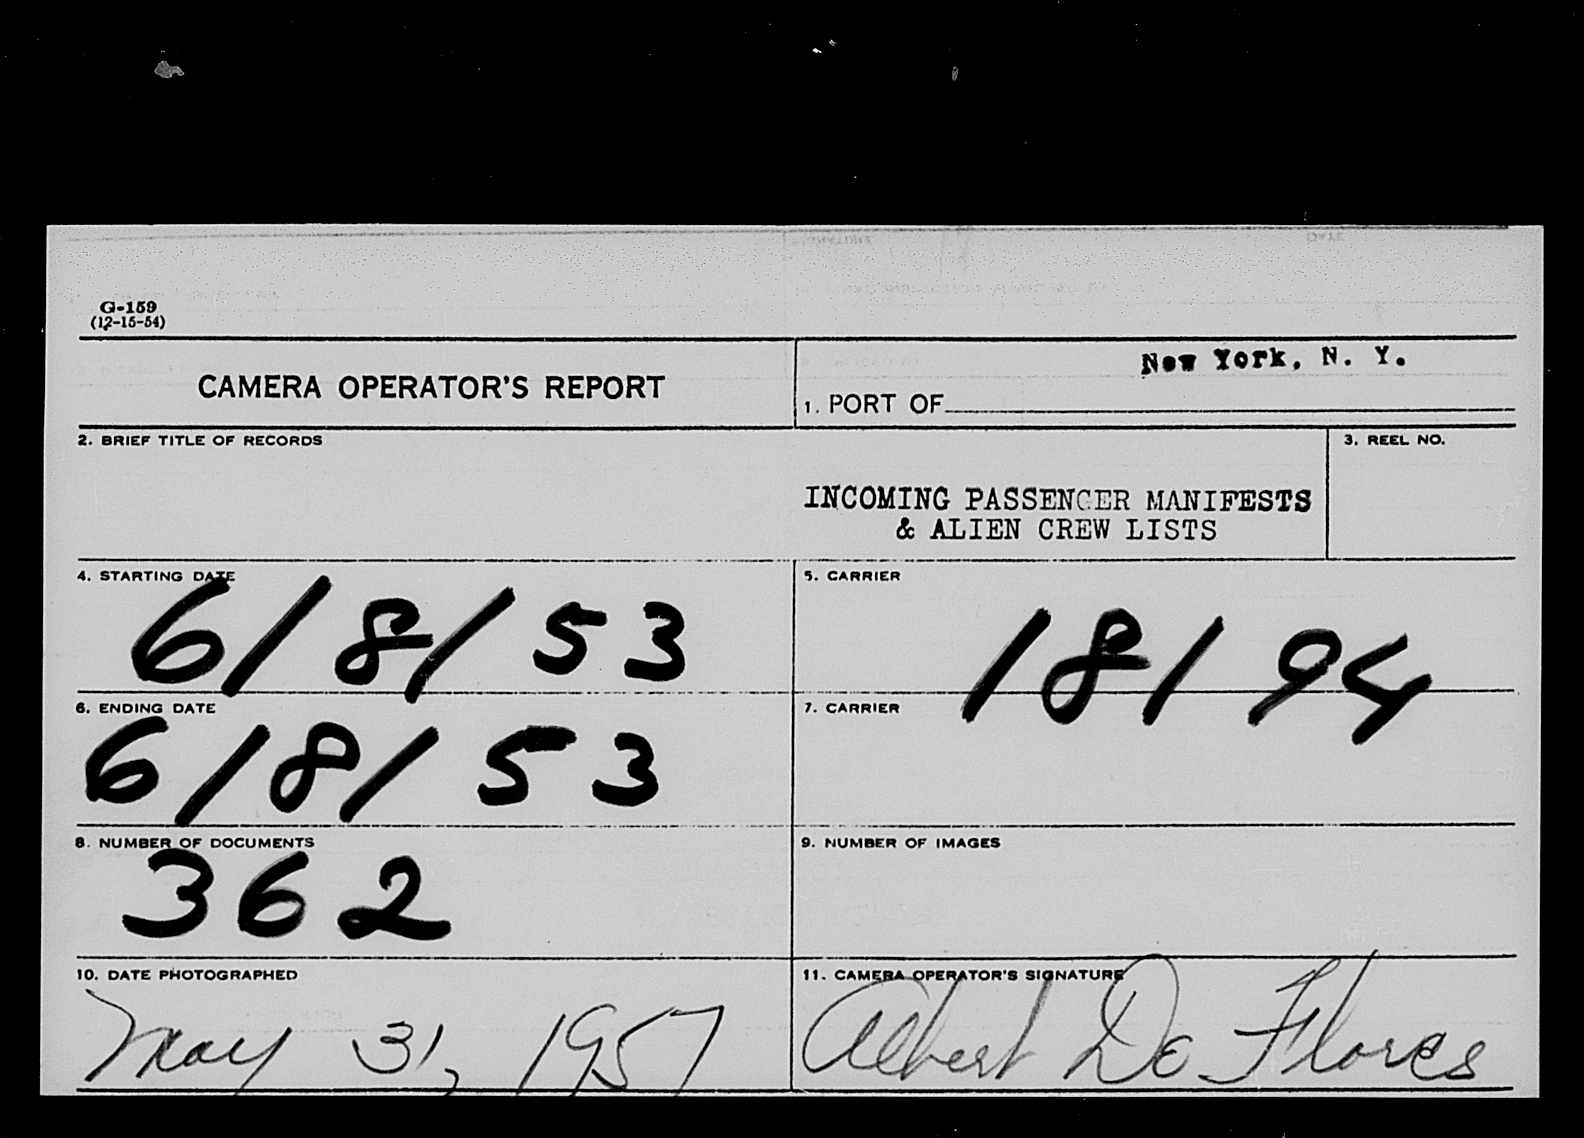 G-159
(12-15-54)
CAMERA OPERATOR'S REPORT
New York, N. Y.
1. PORT OF
2. BRIEF TITLE OF RECORDS
3. REEL NO.
INCOMING PASSENGER MANIFESTS
& ALIEN CREW LISTS
4. STARTING DATE
6/8/53
5. CARRIER
18194
6. ENDING DATE
6/8/53
7. CARRIER
8. NUMBER OF DOCUMENTS
362
9. NUMBER OF IMAGES
10. DATE PHOTOGRAPHED
May 31, 1957
11. CAMERA OPERATOR'S SIGNATURE
Albert De Flores